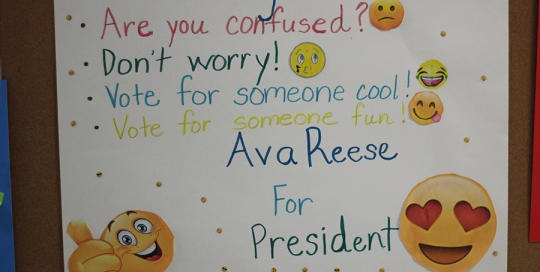 • Are you confused?
• Don't worry!
• Vote for someone cool!
• Vote for someone fun!
Ava Reese
For
President